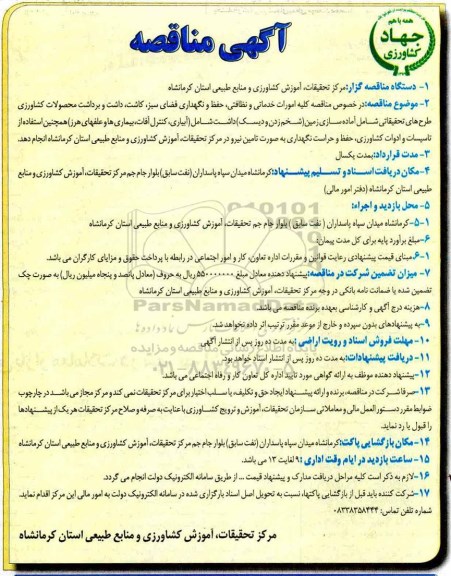 همه با هم
جهاد
کشاورزی
آگهی مناقصه
۱- دستگاه مناقصه گزار: مرکز تحقیقات، آموزش کشاورزی و منابع طبیعی استان کرمانشاه
۲- موضوع مناقصه: در خصوص مناقصه کلیه امورات خدماتی و نظافتی، حفظ و نگهداری فضای سبز، کاشت، داشت و برداشت محصولات کشاورزی
طرح‌های تحقیقاتی شامل آماده سازی زمین (شخم زدن و دیسک) داشت شامل (آبیاری، کنترل آفات، بیماری ها و علفهای هرز) همچنین استفاده از
تاسیسات و ادوات کشاورزی، حفظ و حراست نگهداری به صورت تامین نیرو در مرکز تحقیقات، آموزش کشاورزی و منابع طبیعی استان کرمانشاه انجام دهد.
۳- مدت قرارداد: بمدت یکسال
۴- مکان دریافت اسناد و تسلیم پیشنهاد: کرمانشاه میدان سپاه پاسداران (نفت سابق) بلوار جام جم مرکز تحقیقات، آموزش کشاورزی و منابع
طبیعی استان کرمانشاه (دفتر امور مالی)
۵- محل بازدید و اجراء:
۵-۱- کرمانشاه میدان سپاه پاسداران (نفت سابق) بلوار جام جم تحقیقات، آموزش کشاورزی و منابع طبیعی استان کرمانشاه
۶- مبلغ برآورد پایه برای کل مدت پیمان:
۶-۱- مبنای قیمت پیشنهادی رعایت قوانین و مقررات اداره تعاون، کار و امور اجتماعی در رابطه با پرداخت حقوق و مزایای کارگران می باشد.
۷- میزان تضمین شرکت در مناقصه: پیشنهاد دهنده معادل مبلغ ۵۵۰۰۰۰۰۰۰ ریال به حروف (معادل پانصد و پنجاه میلیون ریال) به صورت چک
تضمین شده یا ضمانت نامه بانکی در وجه مرکز تحقیقات، آموزش کشاورزی و منابع طبیعی استان کرمانشاه
۸- هزینه درج آگهی و کارشناسی بعهده برنده مناقصه می باشد.
۹- به پیشنهادهای بدون سپرده و خارج از موعد مقرر ترتیب اثر داده نخواهد شد.
۱۰- مهلت فروش اسناد و رویت اراضی: به مدت ده روز پس از انتشار آگهی
۱۱- دریافت پیشنهادات: به مدت ده روز پس از انتشار اسناد خواهد بود.
۱۲- پیشنهاد دهنده موظف به ارائه گواهی مورد تایید اداره کل تعاون کار و رفاه اجتماعی می باشد.
۱۳- صرفا شرکت در مناقصه، برنده و ارائه پیشنهاد ایجاد حق و تکلیف یا سلب اختیار برای مرکز تحقیقات نمی کند و مرکز مجاز می باشد در چارچوب
ضوابط مقرر دستور العمل مالی و معاملاتی سازمان تحقیقات، آموزش و ترویج کشاورزی با عنایت به صرفه و صلاح مرکز تحقیقات هر یک از پیشنهادها
را قبول یا رد نماید.
۱۴- مکان بازگشایی پاکت: کرمانشاه میدان سپاه پاسداران (نفت سابق) بلوار جام جم مرکز تحقیقات، آموزش کشاورزی و منابع طبیعی استان کرمانشاه
۱۵- ساعت بازدید در ایام وقت اداری: ۹ لغایت ۱۳ می باشد.
۱۶- لازم به ذکر است کلیه مراحل دریافت مدارک و پیشنهاد قیمت ... از طریق سامانه الکترونیک دولت انجام می گردد.
۱۷- شرکت کننده باید قبل از بازگشایی پاکتها، نسبت به تحویل اصل اسناد بارگزاری شده در سامانه الکترونیک دولت به امور مالی این مرکز اقدام نماید.
شماره تلفن تماس: ۰۸۳۳۸۳۵۸۴۴۴
مرکز تحقیقات، آموزش کشاورزی و منابع طبیعی استان کرمانشاه
ParsNamadData